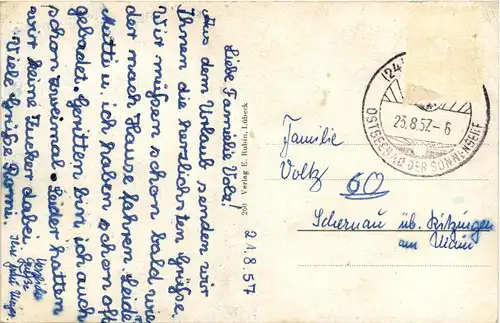 Liebe Familie Volz!
Aus dem Urlaub senden wir
Ihnen die herzlichsten Grüße.
Wir müßen schon bald wie
der nach Hause fahren. Leider
Mutti u. ich haben schon oft
gebadet. Geritten bin ich auch
schon zweimal. Leider hatten
wir keine Zucker dabei
Viele Grüße Ronni.
260 Verlag E. Rubin, Lübeck
21.8.57
(24
23.8.57-6
OSTSEEBAD DER SONNENSEITE
Familie
Voltz
60
Schernau üb. Kitzingen
am Main